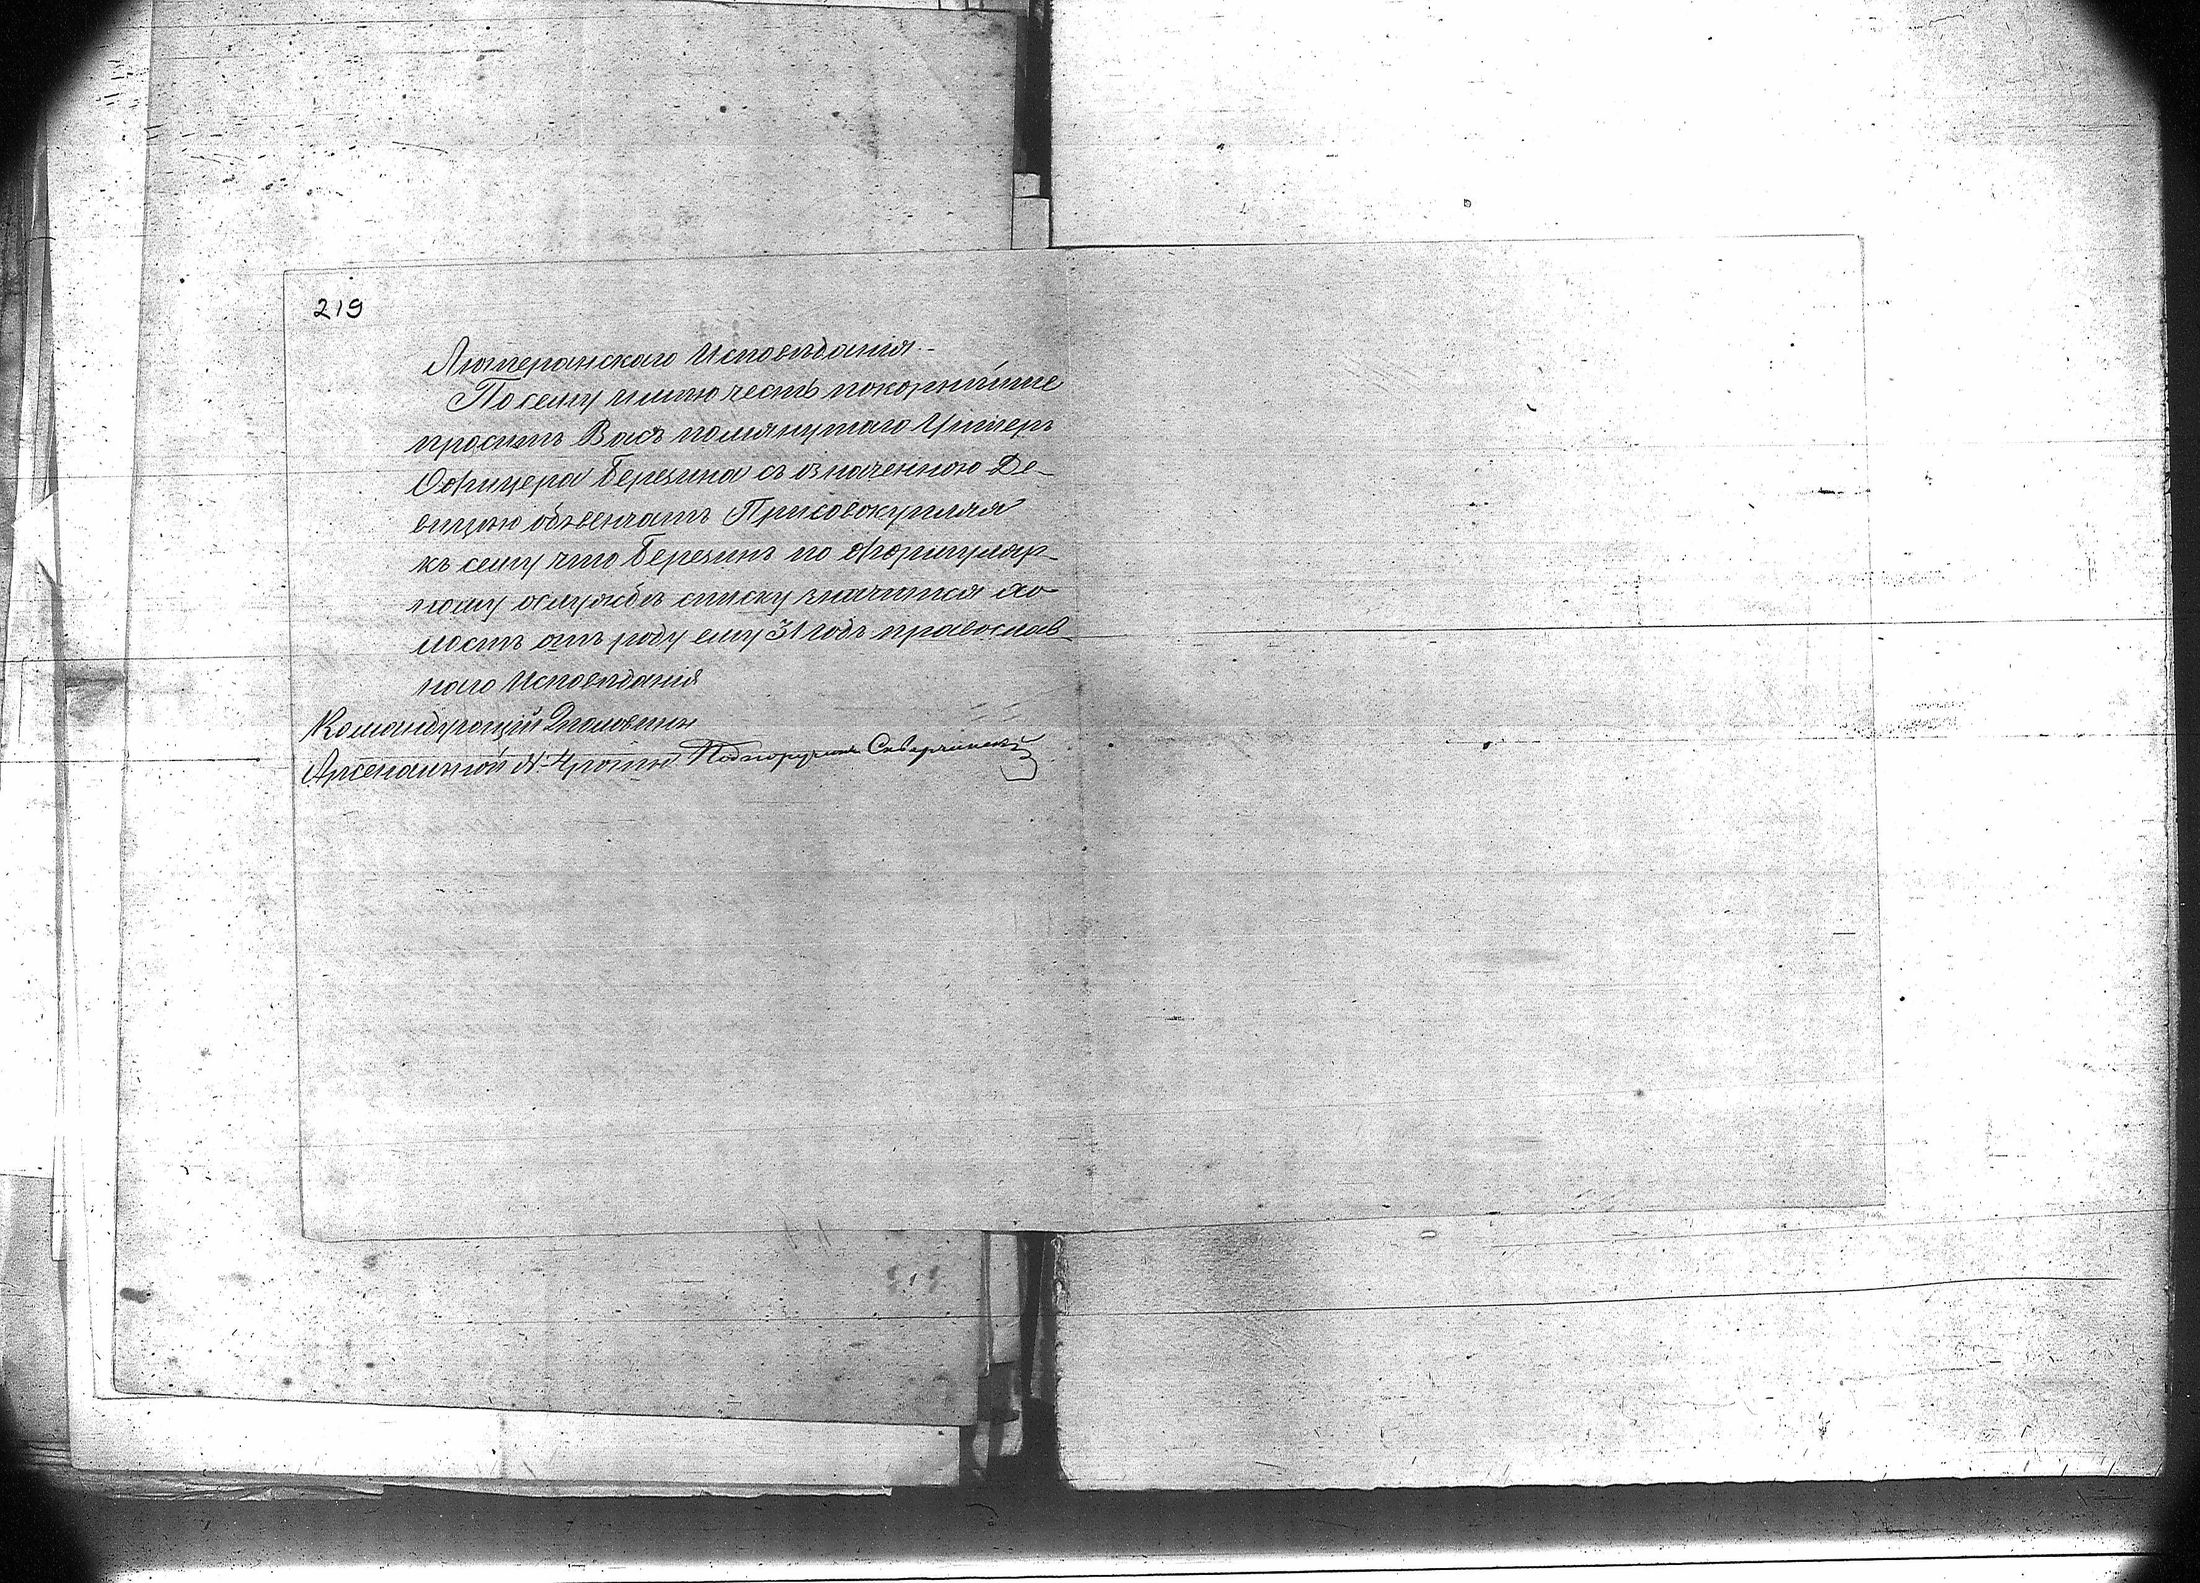 219
Лютеранскаго Исповѣданія.
По сему имѣю честь покорнѣйше
просить Васъ помянутаго Унтеръ
Офицера Березина съ означенною Де-
вицею обвенчать Присовокупляя
къ сему что Березинъ по формуляр-
ному ослужбѣ списку значится хо-
лостъ отъ роду ему 31 годъ православ-
наго Исповѣданія
Командующій
Арсенальной № роты Подпоручикъ